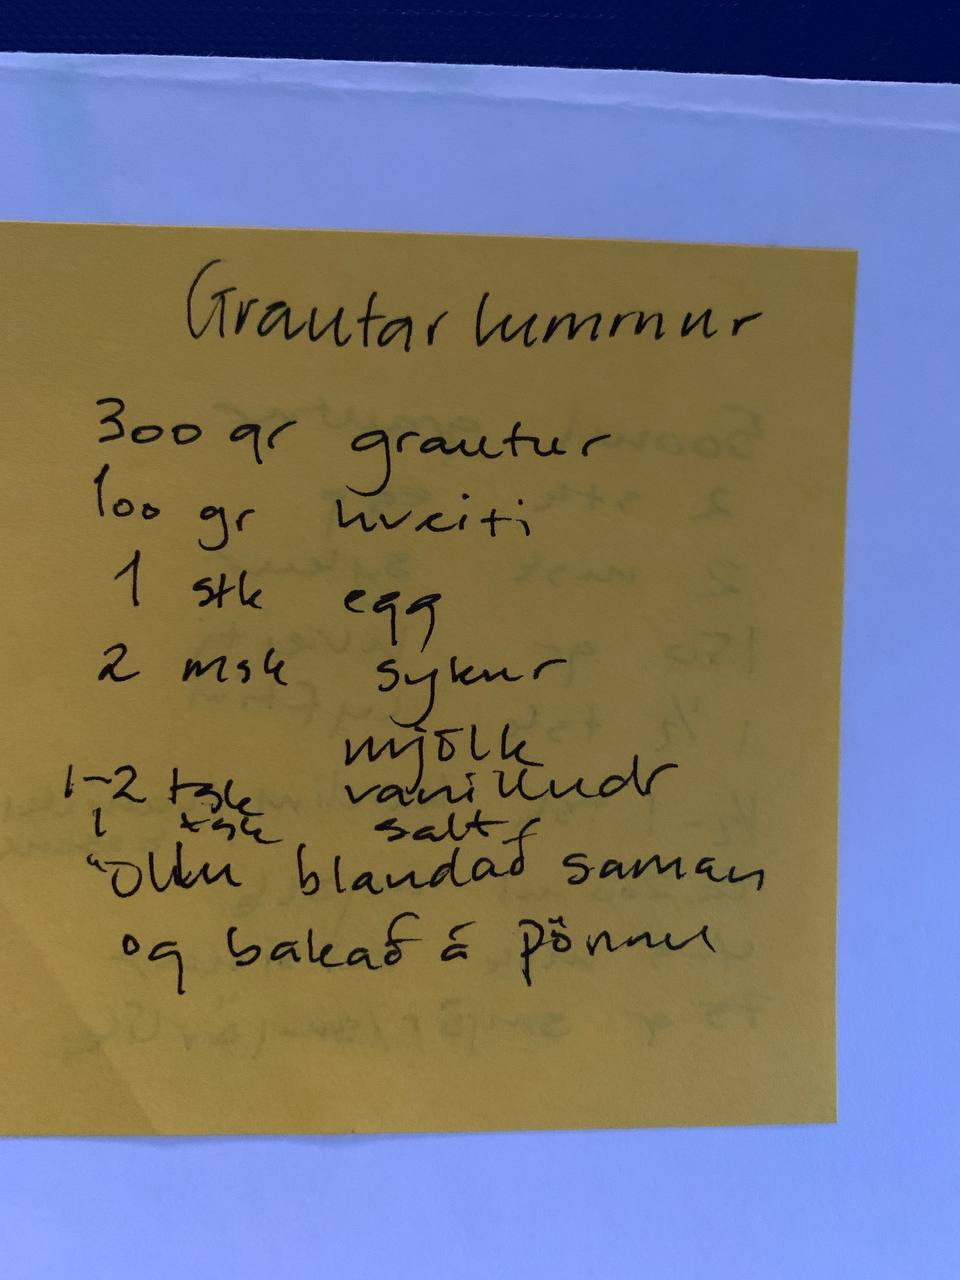 Grautarlummur
300 gr grautur
100 gr hveiti
1 stk egg
2 msk sykur
mjólk
1-2 tsk vanilludr
1 tsk salt
Öllu blandað saman
og bakað á pönnu